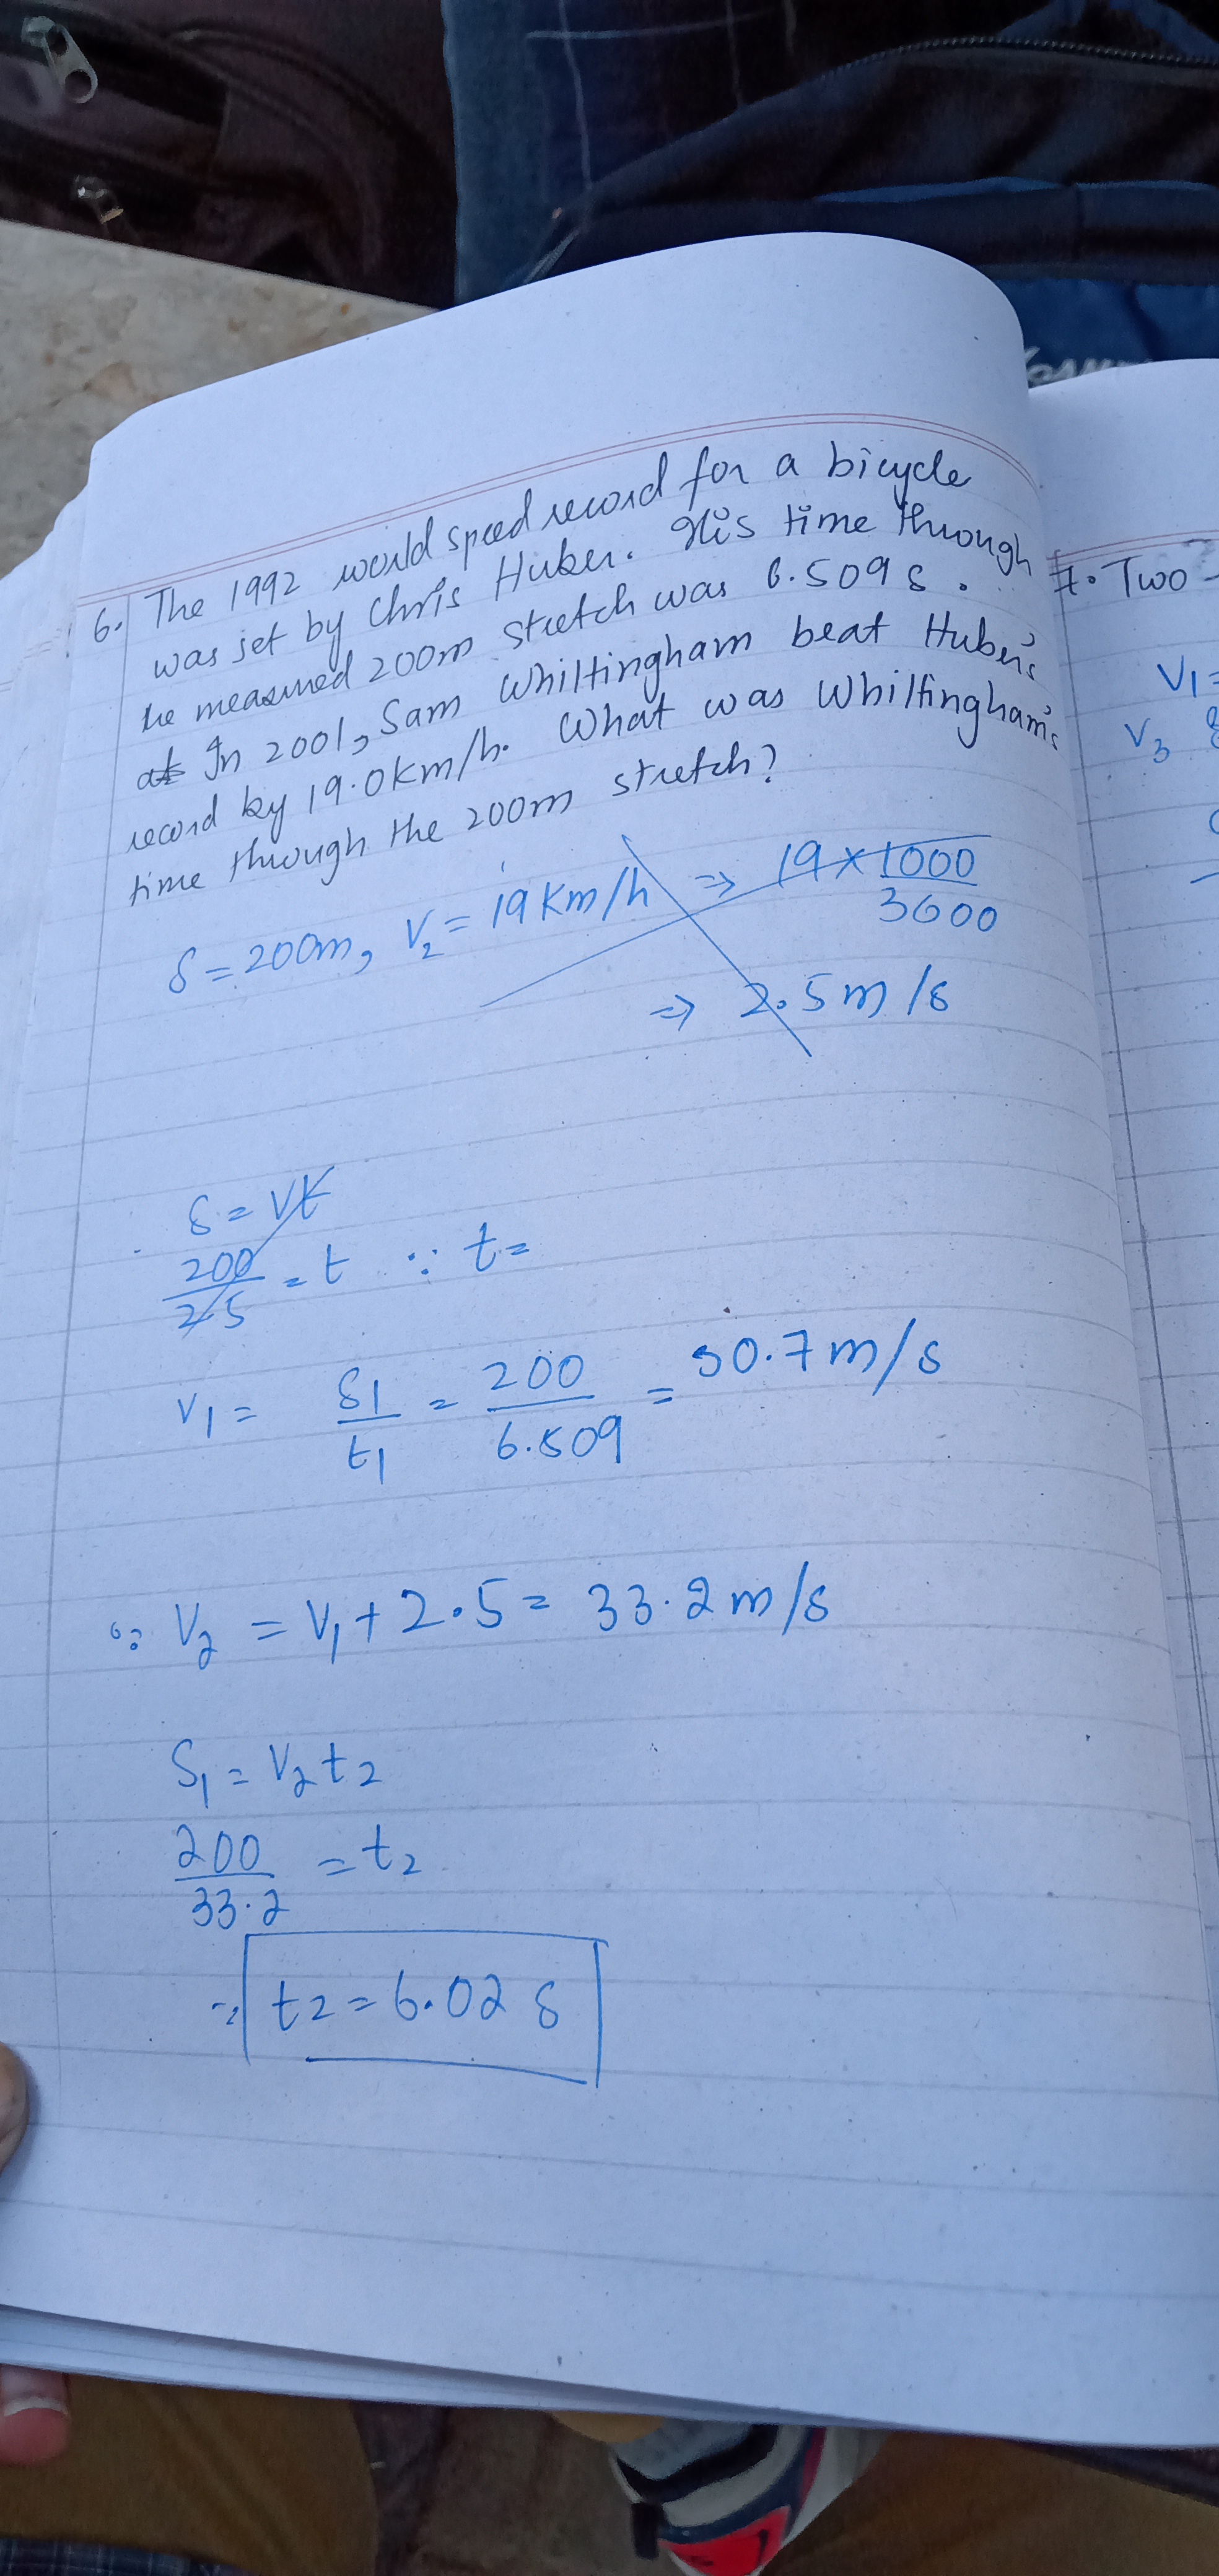 6. The 1992 world speed record for a bicycle
was set by Chris Huber. His time through
the measured 200m stretch was 6.509 s.
at In 2001, Sam Whiltingham beat Huber's
record by 19.0km/h. What was Whiltingham's
time through the 200m stretch?
S = 200m, V₂ = 19km/h ⇒ 19×1000/3600
⇒ 2.5 m/s
S = Vt
200/25 = t ∵ t=
V₁ = S1/t1 = 200/6.509 = 30.7 m/s
∵ V₂ = V₁ + 2.5 = 33.2 m/s
S₁ = V₂t₂
200/33.2 = t₂
t₂ = 6.02 s
7. Two
V₁ =
V₃